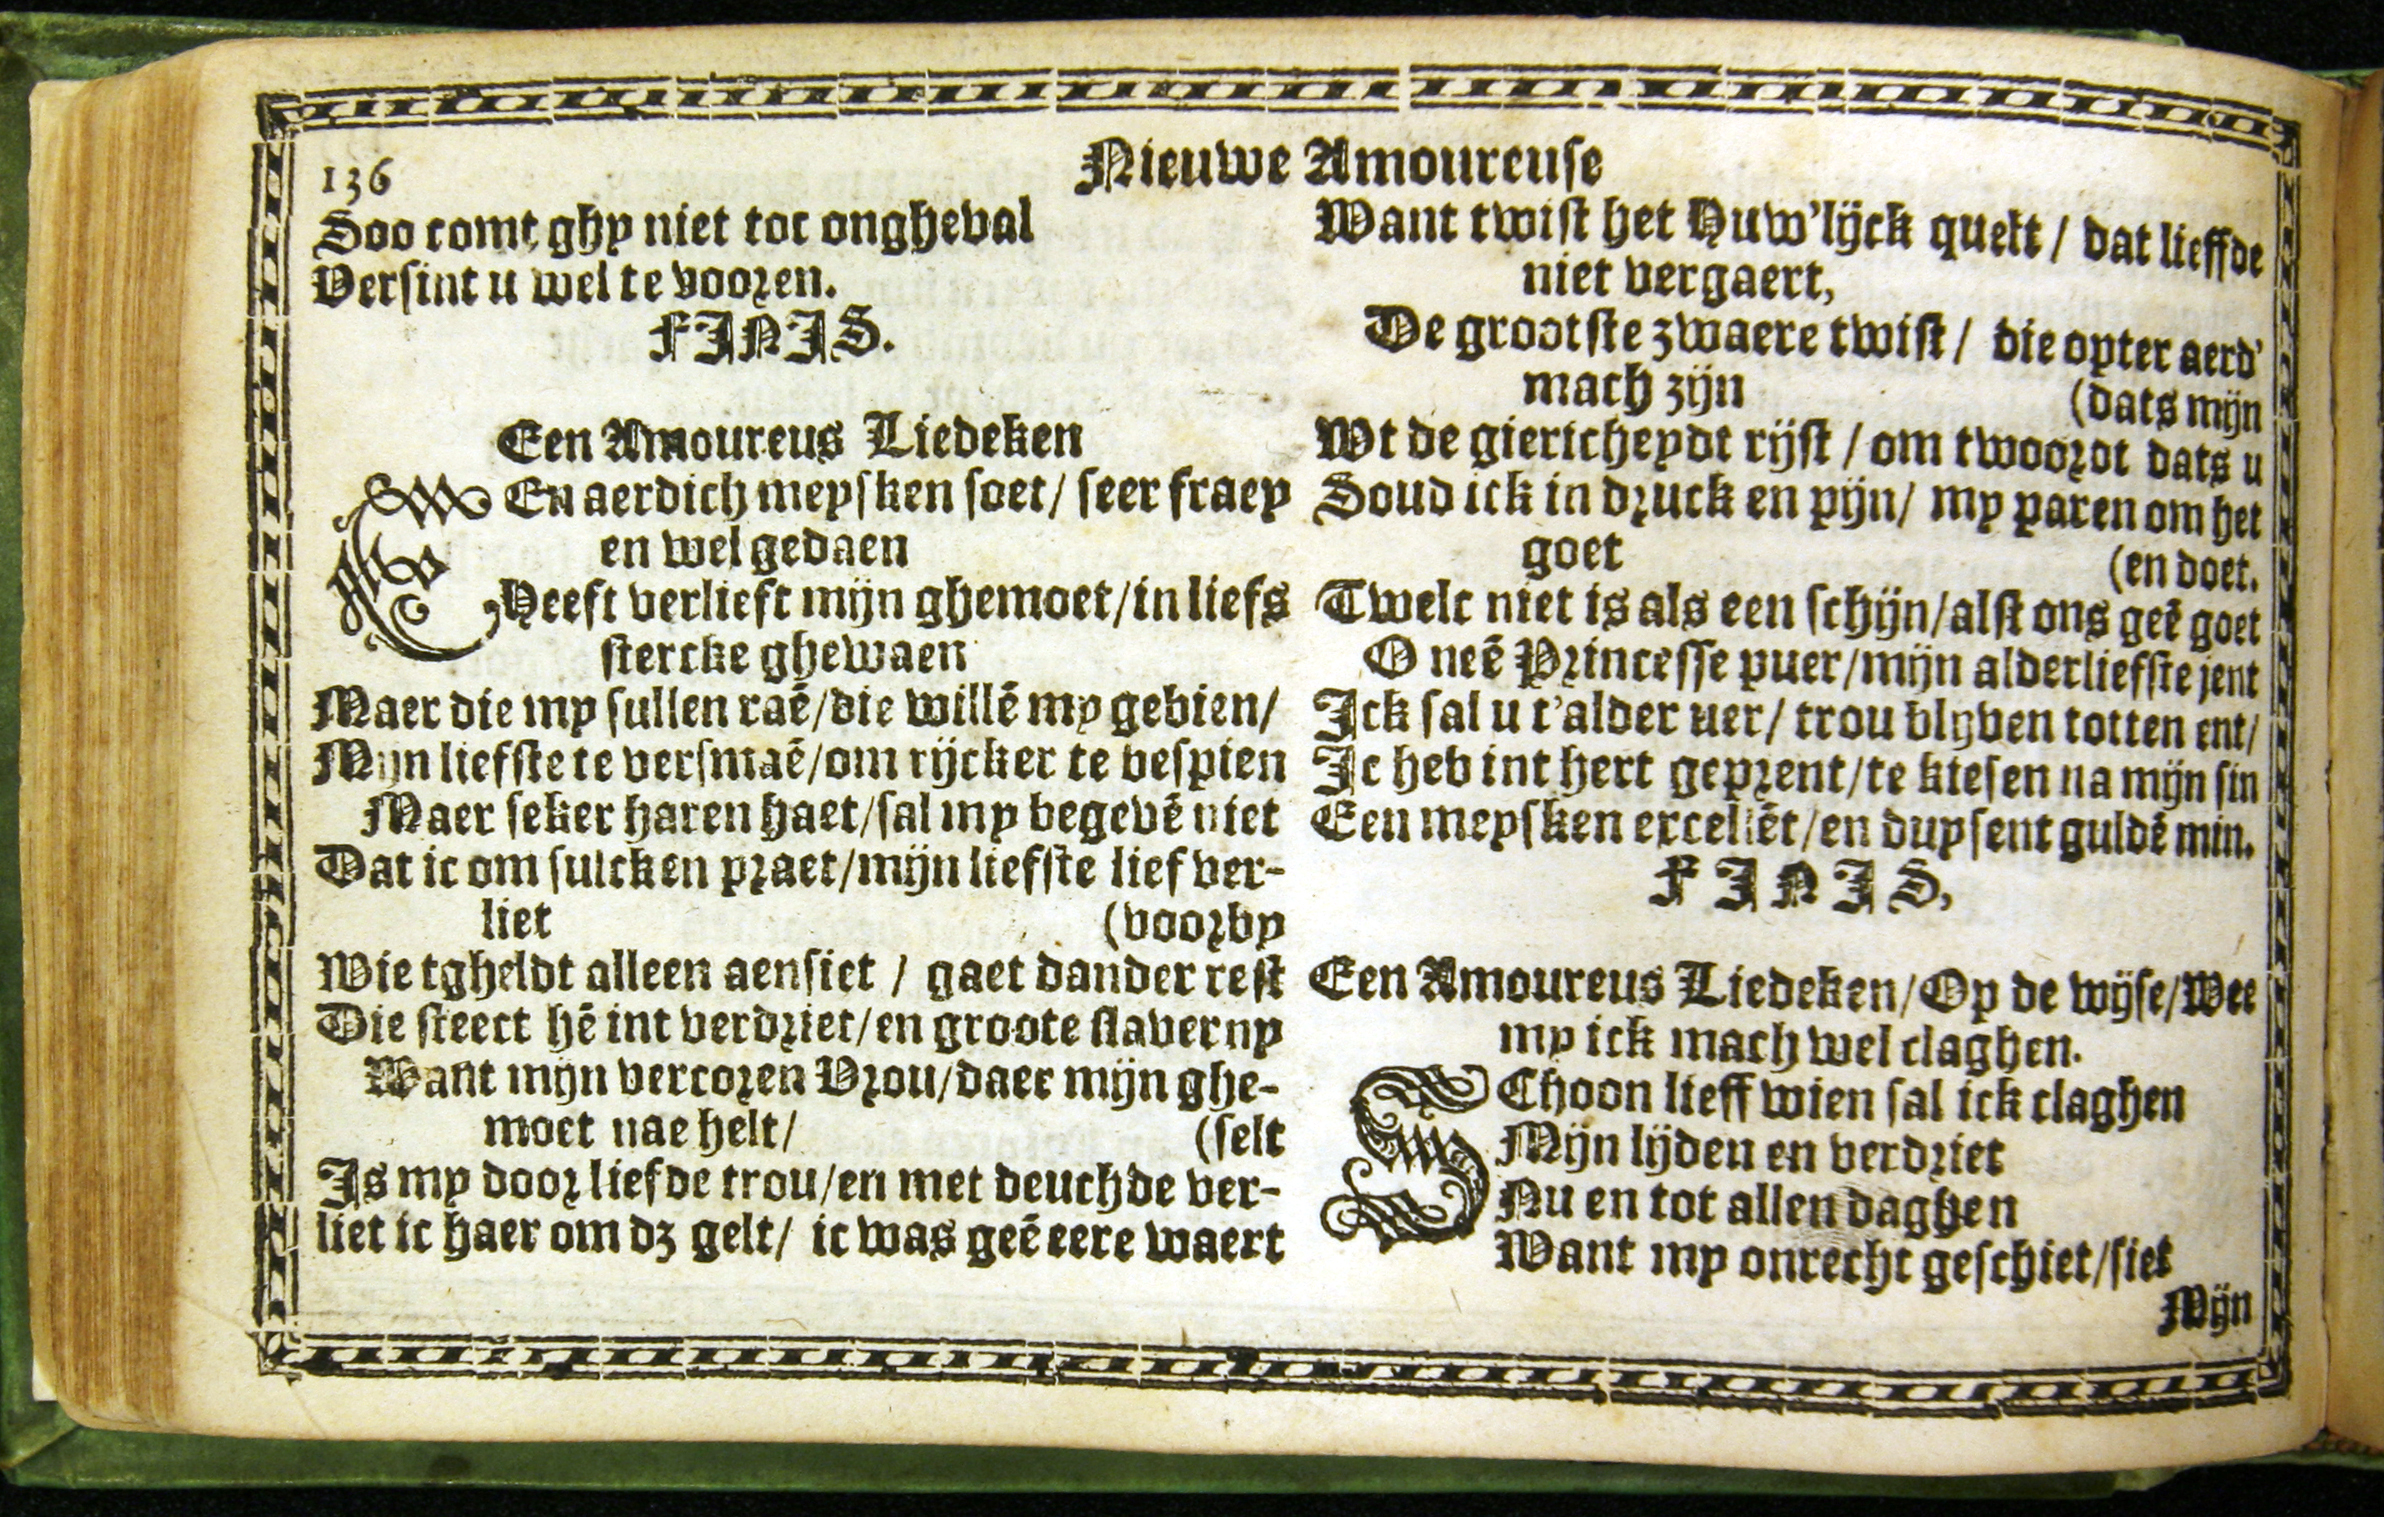 136
Nieuwe Amoureuse
Soo comt ghy niet tot ongheval
Versint u wel te vooren.
FINIS.
Een Amoureus Liedeken
EEn aerdich meysken soet/ seer fraey
en wel gedaen
Heeft verlieft mijn ghemoet/in liefs
stercke ghewaen
Maer die my sullen raẽ/die willẽ my gebien/
Mijn liefste te versmaẽ/om rijcker te bespien
Maer seker haren haet/sal my begevẽ niet
Dat ic om sulcken praet/mijn liefste lief ver-
liet (voorby
Wie tgheldt alleen aensiet / gaet dander rest
Die steect hẽ int verdriet/en groote slaverny
Want mijn vercoren Vrou/daer mijn ghe-
moet nae helt/ (selt
Is my door liefde trou/en met deuchde ver-
liet ic haer om dz gelt/ ic was geẽ eere waert
Want twist het Huw'lijck quelt / dat lieffde
niet vergaert,
De grootste zwaere twist / die opter aerd'
mach zijn (dats mijn
Wt de giericheydt rijst / om twoordt dats u
Soud ick in druck en pijn/ my paren om het
goet (en doet.
Twelc niet is als een schijn/alst ons geẽ goet
O neẽ Princesse puer/mijn alderliefste jent
Ick sal u t'alder uer/ trou blyven totten ent/
Ic heb int hert geprent/te kiesen na mijn sin
Een meysken excellẽt/en duysent guldẽ min.
FINIS,
Een Amoureus Liedeken/Op de wijse/Wee
my ick mach wel claghen.
SChoon lieff wien sal ick claghen
Mijn lijden en verdriet
Nu en tot allen daghen
Want my onrecht geschiet/siet
Mijn